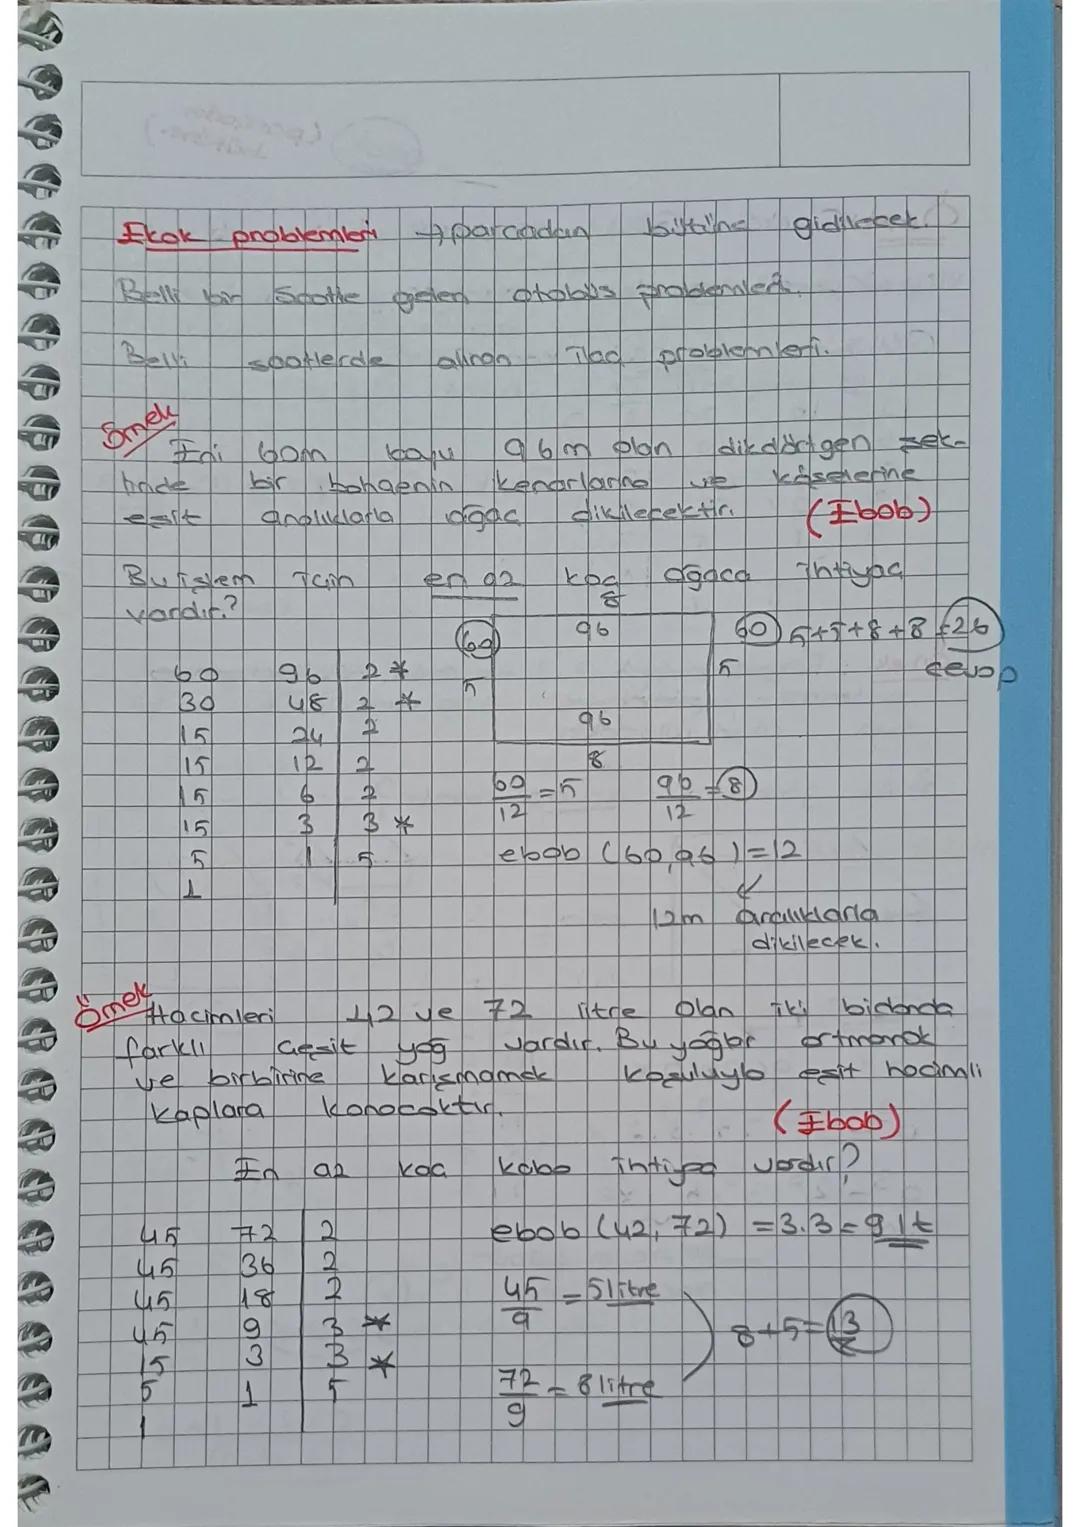 Ekok problemleri → parcadan bütüne gidilecek.
Belli bir Saatte gelen otobüs problemleri.
Belli saatlerde alınan ilaç problemleri.
Örnek
Eni 60m boyu 96m olan dikdörtgen şek-
linde bir bahçenin kenarlarına ve köşelerine
eşit aralıklarla ağaç dikilecektir. (Ebob)
Bu işlem için en az kaç ağaca ihtiyaç
vardır?
8
60 96 60 5+5+8+8=26
5 5 cevap
96
8
60 96 2*
30 48 2 *
15 24 2
15 12 2
15 6 2
15 3 3 *
5 1 5
1
60/12 = 5 96/12 = 8
ebob (60,96) = 12
12m aralıklarla
dikilecek.
Örnek
Hacimleri 42 ve 72 litre olan iki bidonda
farklı çeşit yağ vardır. Bu yağlar artmamak
ve birbirine karışmamak koşuluyla eşit hacimli
kaplara konacaktır. (Ebob)
En az kaç kaba ihtiyaç vardır?
45 72 2
45 36 2
45 18 2
45 9 3 *
15 3 3 *
5 1 5
1
ebob (42, 72) = 3.3 = 9 lt
45/9 = 5 litre
8+5=13
72/9 = 8 litre